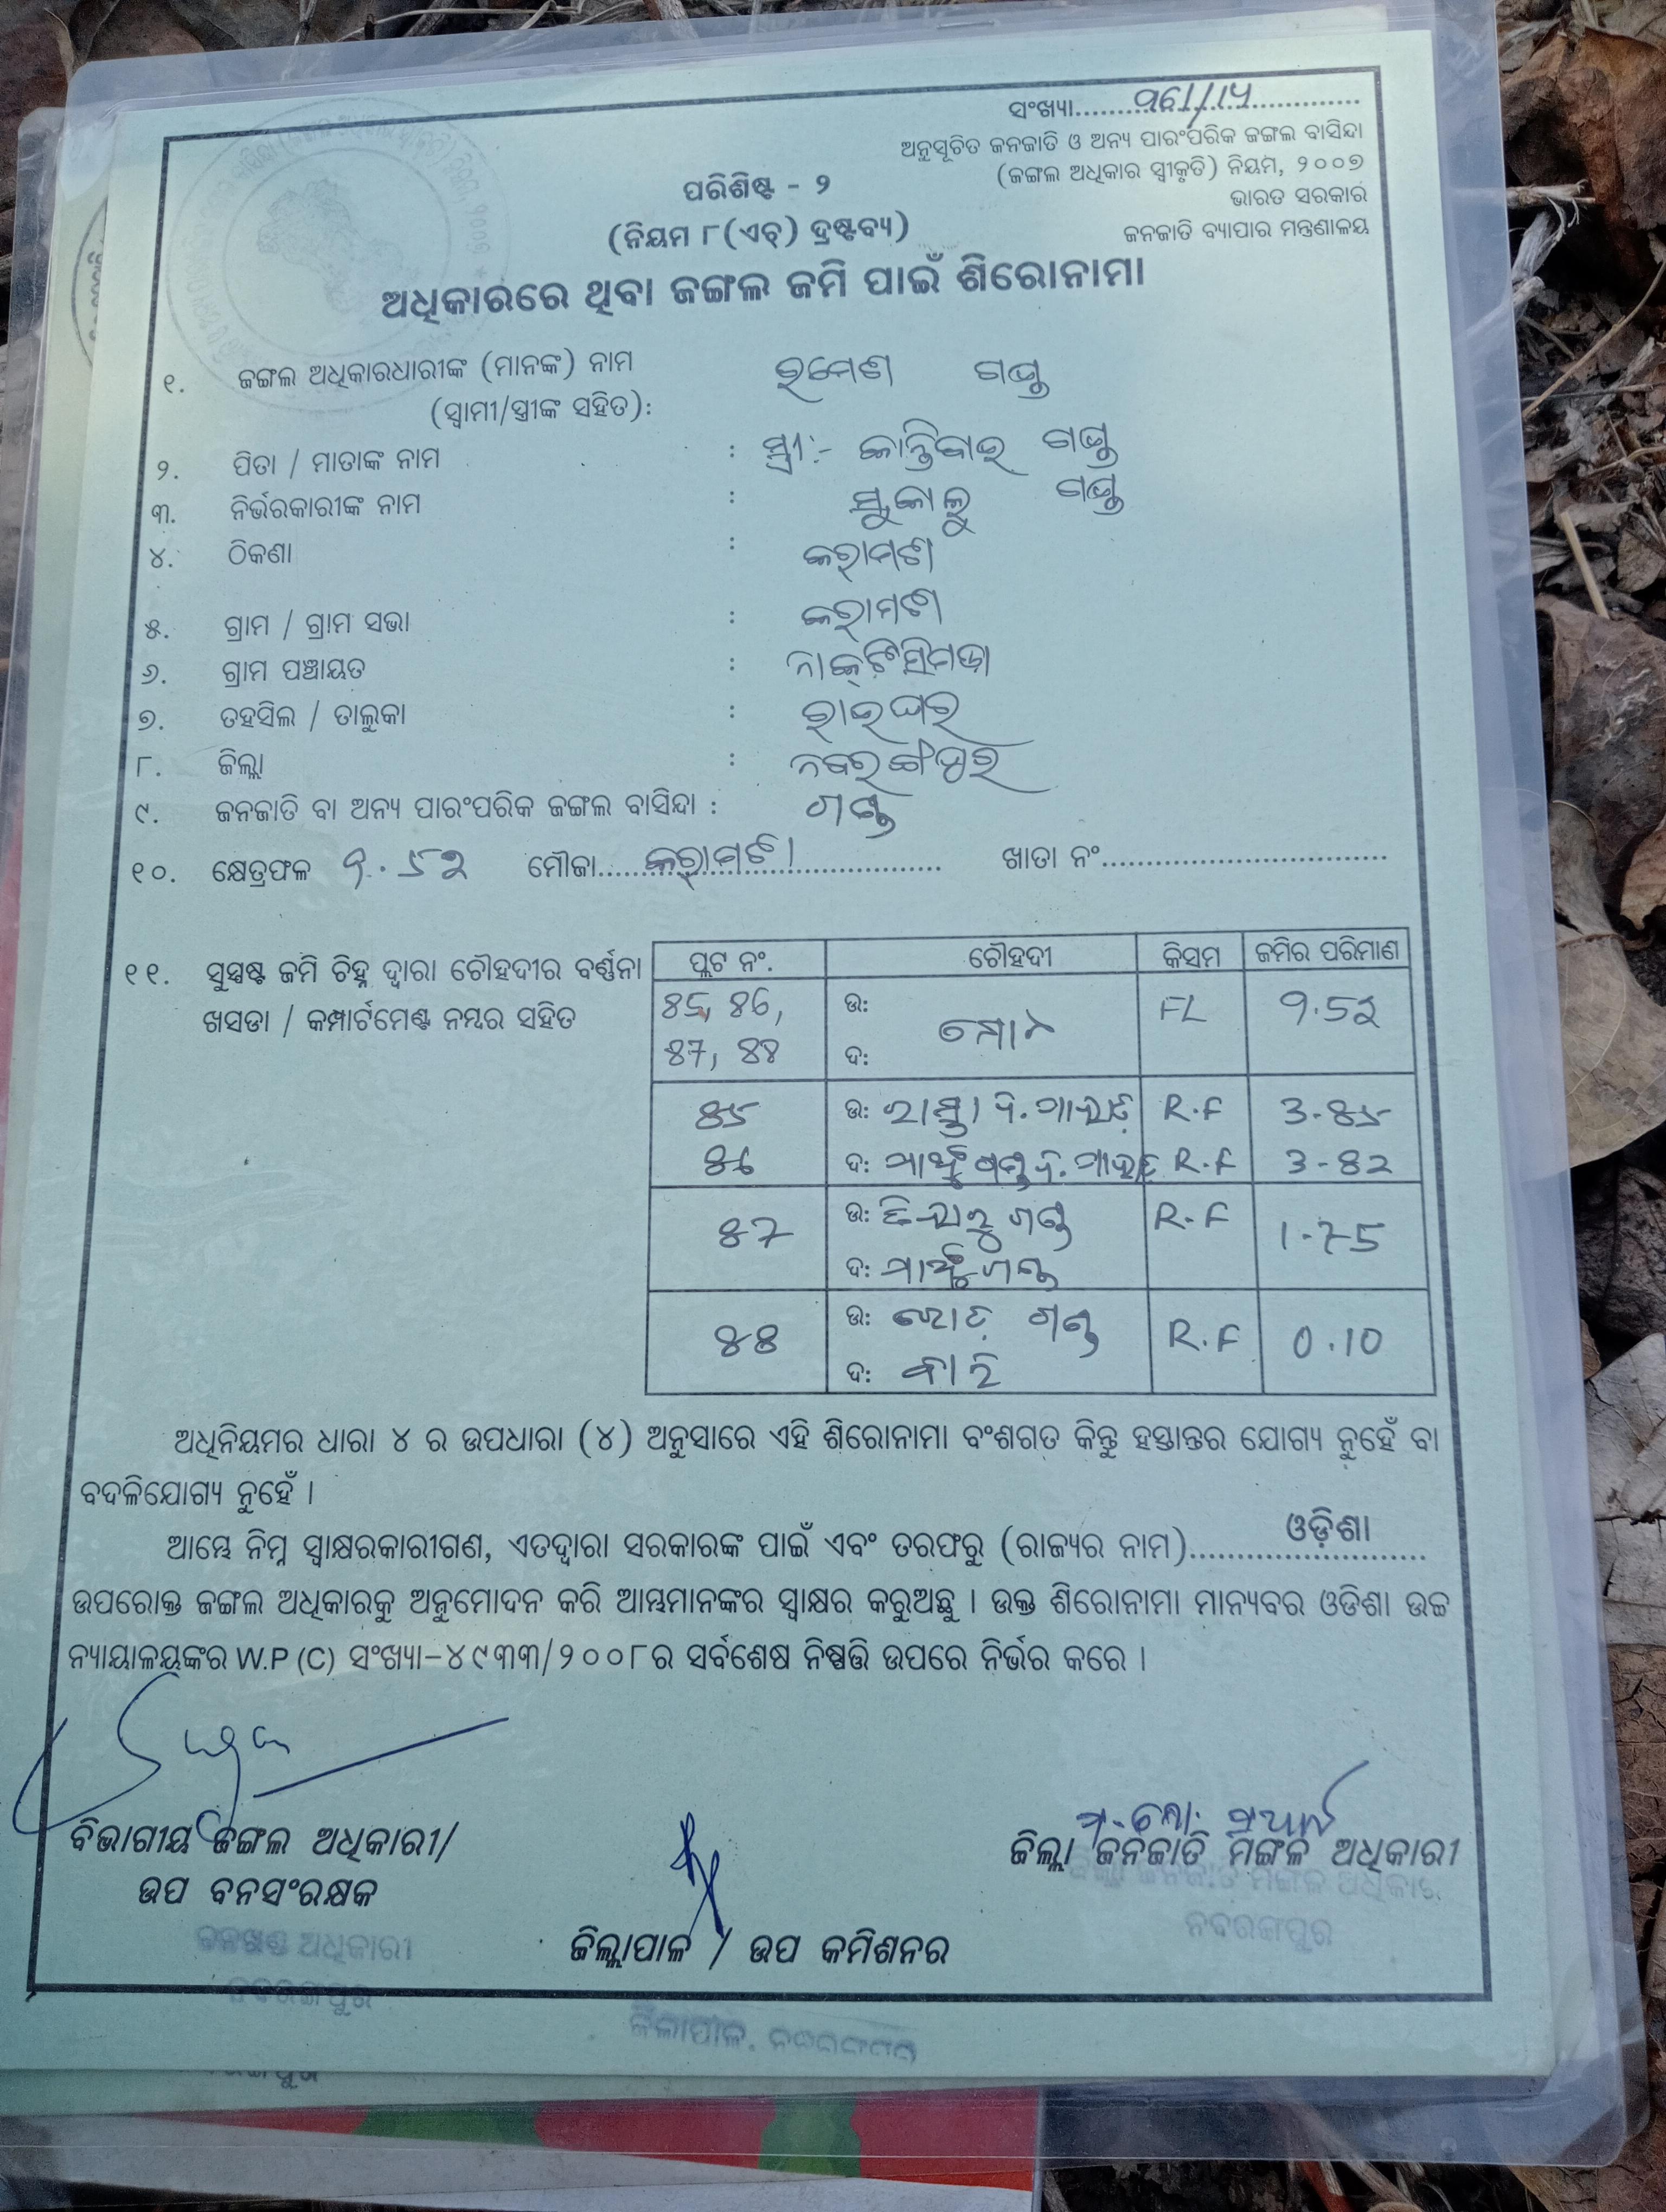 ସଂଖ୍ୟା..............................
ଅନୁସୂଚିତ ଜନଜାତି ଓ ଅନ୍ୟ ପାରଂପରିକ ଜଙ୍ଗଲ ବାସିନ୍ଦା
(ଜଙ୍ଗଲ ଅଧିକାର ସ୍ୱୀକୃତି) ନିୟମ, ୨୦୦୭
ଭାରତ ସରକାର
ଜନଜାତି ବ୍ୟାପାର ମନ୍ତ୍ରଣାଳୟ
ପରିଶିଷ୍ଟ - ୨
(ନିୟମ ୮(ଏଚ୍) ଦ୍ରଷ୍ଟବ୍ୟ)
ଅଧିକାରରେ ଥିବା ଜଙ୍ଗଲ ଜମି ପାଇଁ ଶିରୋନାମା
୧. ଜଙ୍ଗଲ ଅଧିକାରଧାରୀଙ୍କ (ମାନଙ୍କ) ନାମ ରମେଶ ଗଣ୍ଡ
(ସ୍ୱାମୀ/ସ୍ତ୍ରୀଙ୍କ ସହିତ):
୨. ପିତା / ମାତାଙ୍କ ନାମ : ସ୍ତ୍ରୀ:- କାନ୍ତିବାଇ ଗଣ୍ଡ
୩. ନିର୍ଭରକାରୀଙ୍କ ନାମ : ସୁକାଲୁ ଗଣ୍ଡ
୪. ଠିକଣା : କରାମଟା
୫. ଗ୍ରାମ / ଗ୍ରାମ ସଭା : କରାମଟା
୬. ଗ୍ରାମ ପଞ୍ଚାୟତ : ନାକ୍ଟିସିମଡ଼ା
୭. ତହସିଲ / ତାଲୁକା : ରାଇଘର
୮. ଜିଲ୍ଲା : ନବରଙ୍ଗପୁର
୯. ଜନଜାତି ବା ଅନ୍ୟ ପାରଂପରିକ ଜଙ୍ଗଲ ବାସିନ୍ଦା : ଗଣ୍ଡ
୧୦. କ୍ଷେତ୍ରଫଳ ୨.୫୨ ମୌଜା.....କରାମଟା.................. ଖାତା ନଂ..............................
୧୧. ସୁସ୍ପଷ୍ଟ ଜମି ଚିହ୍ନ ଦ୍ୱାରା ଚୌହଦୀର ବର୍ଣ୍ଣନା
ଖସଡା / କମ୍ପାର୍ଟମେଣ୍ଟ ନମ୍ବର ସହିତ
ପ୍ଲଟ ନଂ. ଚୌହଦୀ କିସମ ଜମିର ପରିମାଣ
85, 86, ଉ: FL 9.52
87, 88 ଦ:
85 ଉ: ରାସ୍ତା R.F 3.85
86 ଦ: R.F 3-82
87 ଉ: ଗଣ୍ଡ R.F 1.75
ଦ: ଗଣ୍ଡ
88 ଉ: ଗଣ୍ଡ R.F 0.10
ଦ:
ଅଧିନିୟମର ଧାରା ୪ ର ଉପଧାରା (୪) ଅନୁସାରେ ଏହି ଶିରୋନାମା ବଂଶଗତ କିନ୍ତୁ ହସ୍ତାନ୍ତର ଯୋଗ୍ୟ ନୁହେଁ ବା
ବଦଳିଯୋଗ୍ୟ ନୁହେଁ ।
ଆମ୍ଭେ ନିମ୍ନ ସ୍ୱାକ୍ଷରକାରୀଗଣ, ଏତଦ୍ୱାରା ସରକାରଙ୍କ ପାଇଁ ଏବଂ ତରଫରୁ (ରାଜ୍ୟର ନାମ)........ଓଡ଼ିଶା........
ଉପରୋକ୍ତ ଜଙ୍ଗଲ ଅଧିକାରକୁ ଅନୁମୋଦନ କରି ଆମ୍ଭମାନଙ୍କର ସ୍ୱାକ୍ଷର କରୁଅଛୁ । ଉକ୍ତ ଶିରୋନାମା ମାନ୍ୟବର ଓଡିଶା ଉଚ୍ଚ
ନ୍ୟାୟାଳୟଙ୍କର W.P (C) ସଂଖ୍ୟା-୪୯୩୩/୨୦୦୮ର ସର୍ବଶେଷ ନିଷ୍ପତ୍ତି ଉପରେ ନିର୍ଭର କରେ ।
ବିଭାଗୀୟ ଜଙ୍ଗଲ ଅଧିକାରୀ/
ଉପ ବନସଂରକ୍ଷକ
ଜିଲ୍ଲା ଜନଜାତି ମଙ୍ଗଳ ଅଧିକାରୀ
ଜିଲ୍ଲା ଜନଜାତି ମଙ୍ଗଳ ଅଧିକାରୀ
ନବରଙ୍ଗପୁର
ଜିଲ୍ଲାପାଳ / ଉପ କମିଶନର
ବନଖଣ୍ଡ ଅଧିକାରୀ
ନବରଙ୍ଗପୁର
ଜିଲ୍ଲାପାଳ, ନବରଙ୍ଗପୁର